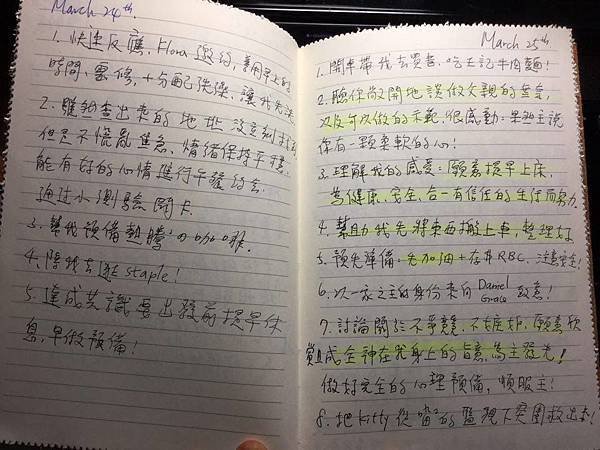 March 24th.
1. 快速反應, Flora 邀約, 善用早上的
時間靈修, 十分配
2. 雖紛查出來的地址沒立刻找到
但是不慌亂焦急, 情緒保持平穩,
能有好的心情進行午餐約會.
通过小測驗関卡.
3. 幫我預備熱騰騰的咖啡.
4. 陪我去逛 staple!
5. 達成共識要出發前提早休
息, 早做預備!
March 25th
1. 開車帶我去買書、吃王記牛肉麵!
2. 聽你敞開地談做父親的
以及可以做的示範, 很感動:
你有一顆柔軟的心!
3. 理解我的感受: 願意提早上床,
為健康、安全、合一有信任的生活而努力.
4. 幫助我先將東西搬上車, 整理好
5. 預先準備: 先加油+存在RBC, 注意安全!
6. 以一家之主的身份來向 Daniel Grace 致意!
7. 討論關於不爭競、不嫉妒, 願意欣
賞且成全神在我身上的旨意, 為主發光!
做好完全的心理預備, 順服主!
8. 把Kitty從